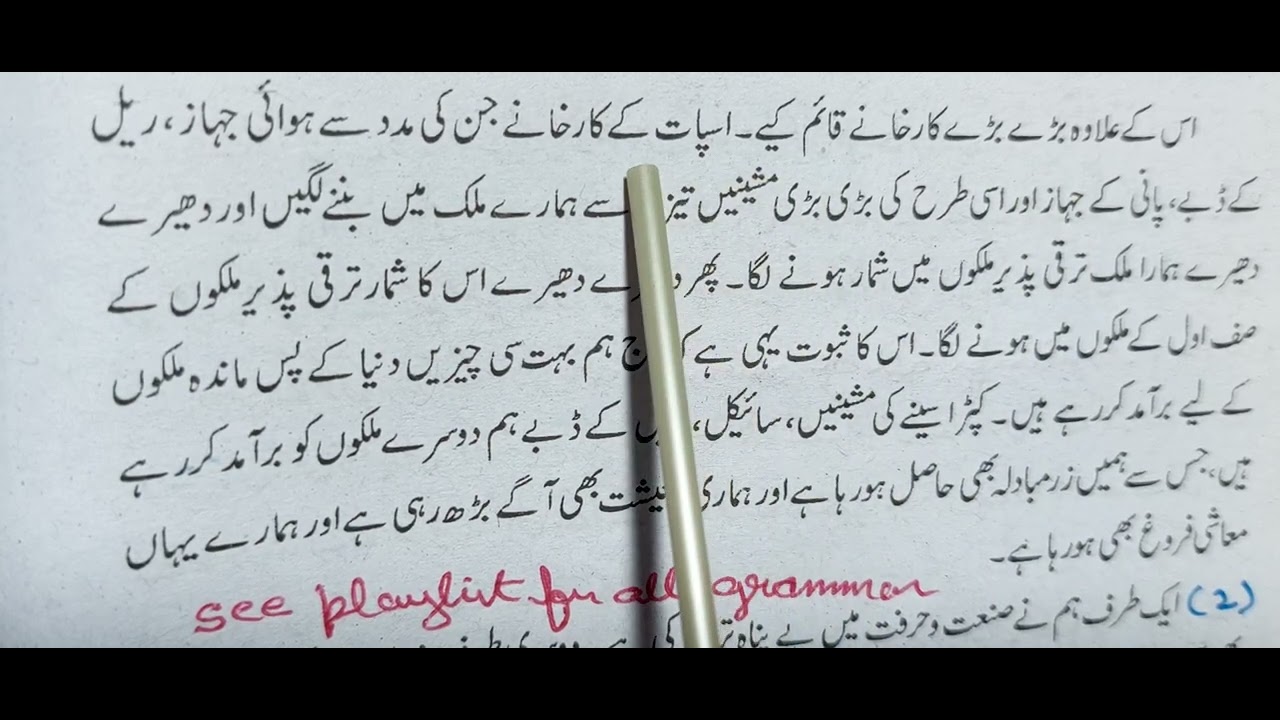 اس کے علاوہ بڑے بڑے کارخانے قائم کیے۔ اسپات کے کارخانے جن کی مدد سے ہوائی جہاز، ریل
کے ڈبے، پانی کے جہاز اور اسی طرح کی بڑی بڑی مشینیں سے ہمارے ملک میں بننے لگیں اور دھیرے
دھیرے ہمارا ملک ترقی پذیر ملکوں میں شمار ہونے لگا۔ پھر دھیرے اس کا شمار ترقی پذیر ملکوں کے
صف اول کے ملکوں میں ہونے لگا۔ اس کا ثبوت یہی ہے ہم بہت سی چیزیں دنیا کے پس ماندہ ملکوں
کے لیے برآمد کر رہے ہیں۔ کپڑا سینے کی مشینیں، سائیکل، کے ڈبے ہم دوسرے ملکوں کو برآمد کر رہے
ہیں، جس سے ہمیں زرمبادلہ بھی حاصل ہو رہا ہے اور ہماری بھی آگے بڑھ رہی ہے اور ہمارے یہاں
معاشی فروغ بھی ہو رہا ہے۔
see playlist for all grammar
(2) ایک طرف ہم نے صنعت و حرفت میں بے پناہ کی